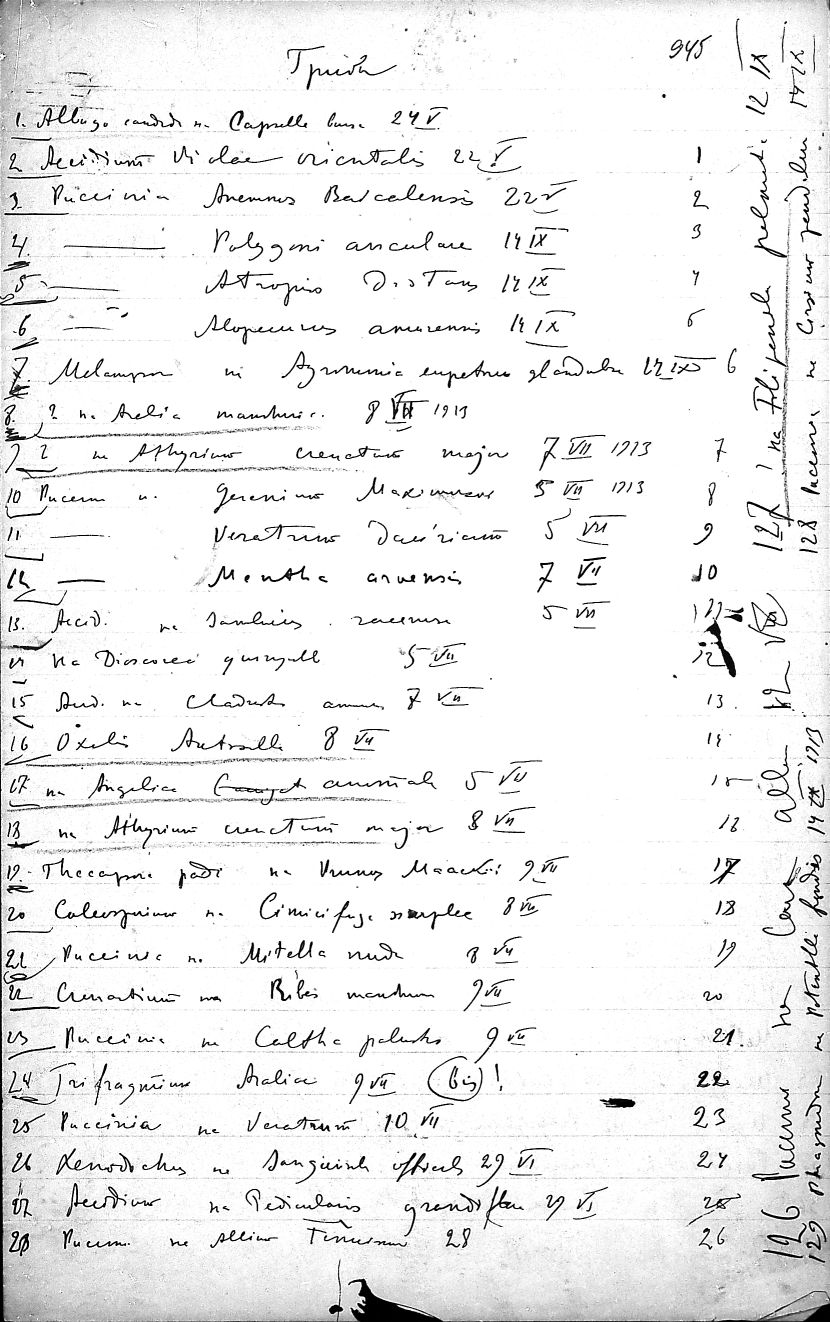 945
Грибы
1. Albugo candida на Capselle bursa 24 V
2 Aecidium Violae orientalis 22 V 1
3. Puccinia Anemones Baicalensis 22 V 2
4 —— Polygoni aviculare 14 IX 3
5 —— Atropis Distans 14 IX 4
6 —— Alopecurus amurensis 14 IX 5
7. Melampsor на Agrimonia eupatori glandulen 14 IX 6
8. ? на Aralia manshuric. 8 VII 1913
9 ? на Athyrium crenatum major 7 VII 1913 7
10 Puccin на Geranium Maximowi 5 VII 1913 8
11 —— Veratrum Dauricum 5 VII 9
12 —— Mentha arvensis 7 VII 10
13. Aecid. на Sambucus racemosa 5 VII 11
14 на Dioscorea quinquel 5 VII 12
15 Aecid. на Cladrastis amur 7 VII 13
16 Oxalis Acetosella 8 VII 14
17 на Angelica anomala 5 VII 15
18 на Athyrium crenatum major 8 VII 16
19. Thecapsora padi на Prunus Maackii 9 VII 17
20 Coleosporium на Cimicifuga simplex 8 VII 18
21 Puccinia на Mitella nuda 8 VII 19
22 Cronartium на Ribes manshur 9 VII 20
23 Puccinia на Caltha palustris 9 VII 21
24 Trifragmium Aralia 9 VII (bis)! 22
25 Puccinia на Veratrum 10 VII 23
26 Xenodochus на Sanguisorb officinalis 29 VI 24
27 Aecidium на Pedicularis grandiflora 29 VI 25
28 Puccin на Allium Tenuissimum 28 26
126 Puccinia на allium VIII
127 ? на Filipendula palmata 12 IX
128 Puccinia на Cirsium pendulum 14 IX
129 Phragmidium на Potentilla 14 IX 1913